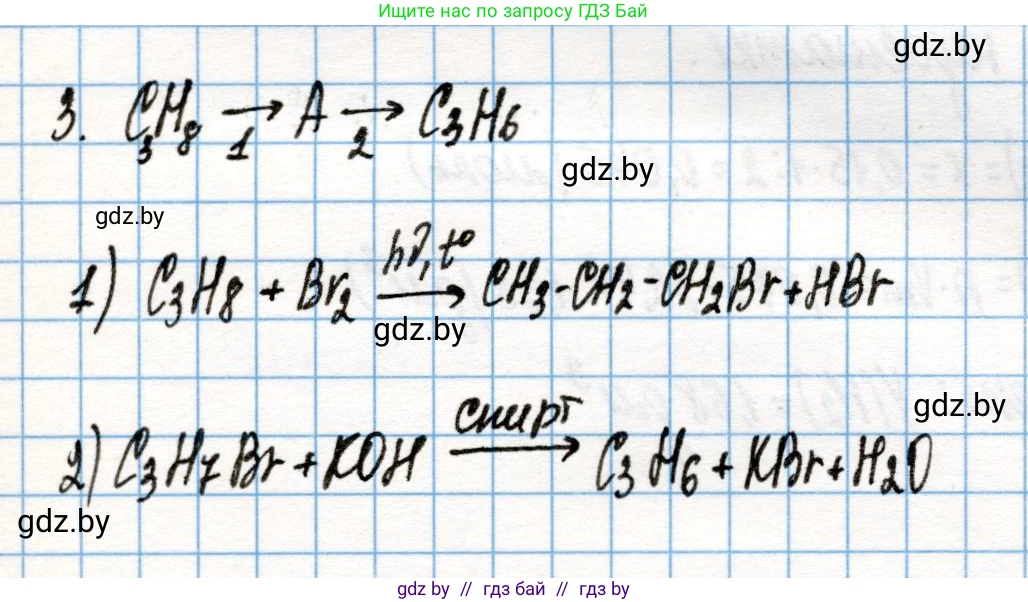 Ищите нас по запросу ГДЗ Бай
gdz.by
3. C₃H₈ →₁ A →₂ C₃H₆
gdz.by
gdz.by
hν, t°
1) C₃H₈ + Br₂ → CH₃-CH₂-CH₂Br + HBr
gdz.by
gdz.by
спирт
2) C₃H₇Br + KOH → C₃H₆ + KBr + H₂O
gdz.by
gdz by // гдз бай // гдз by